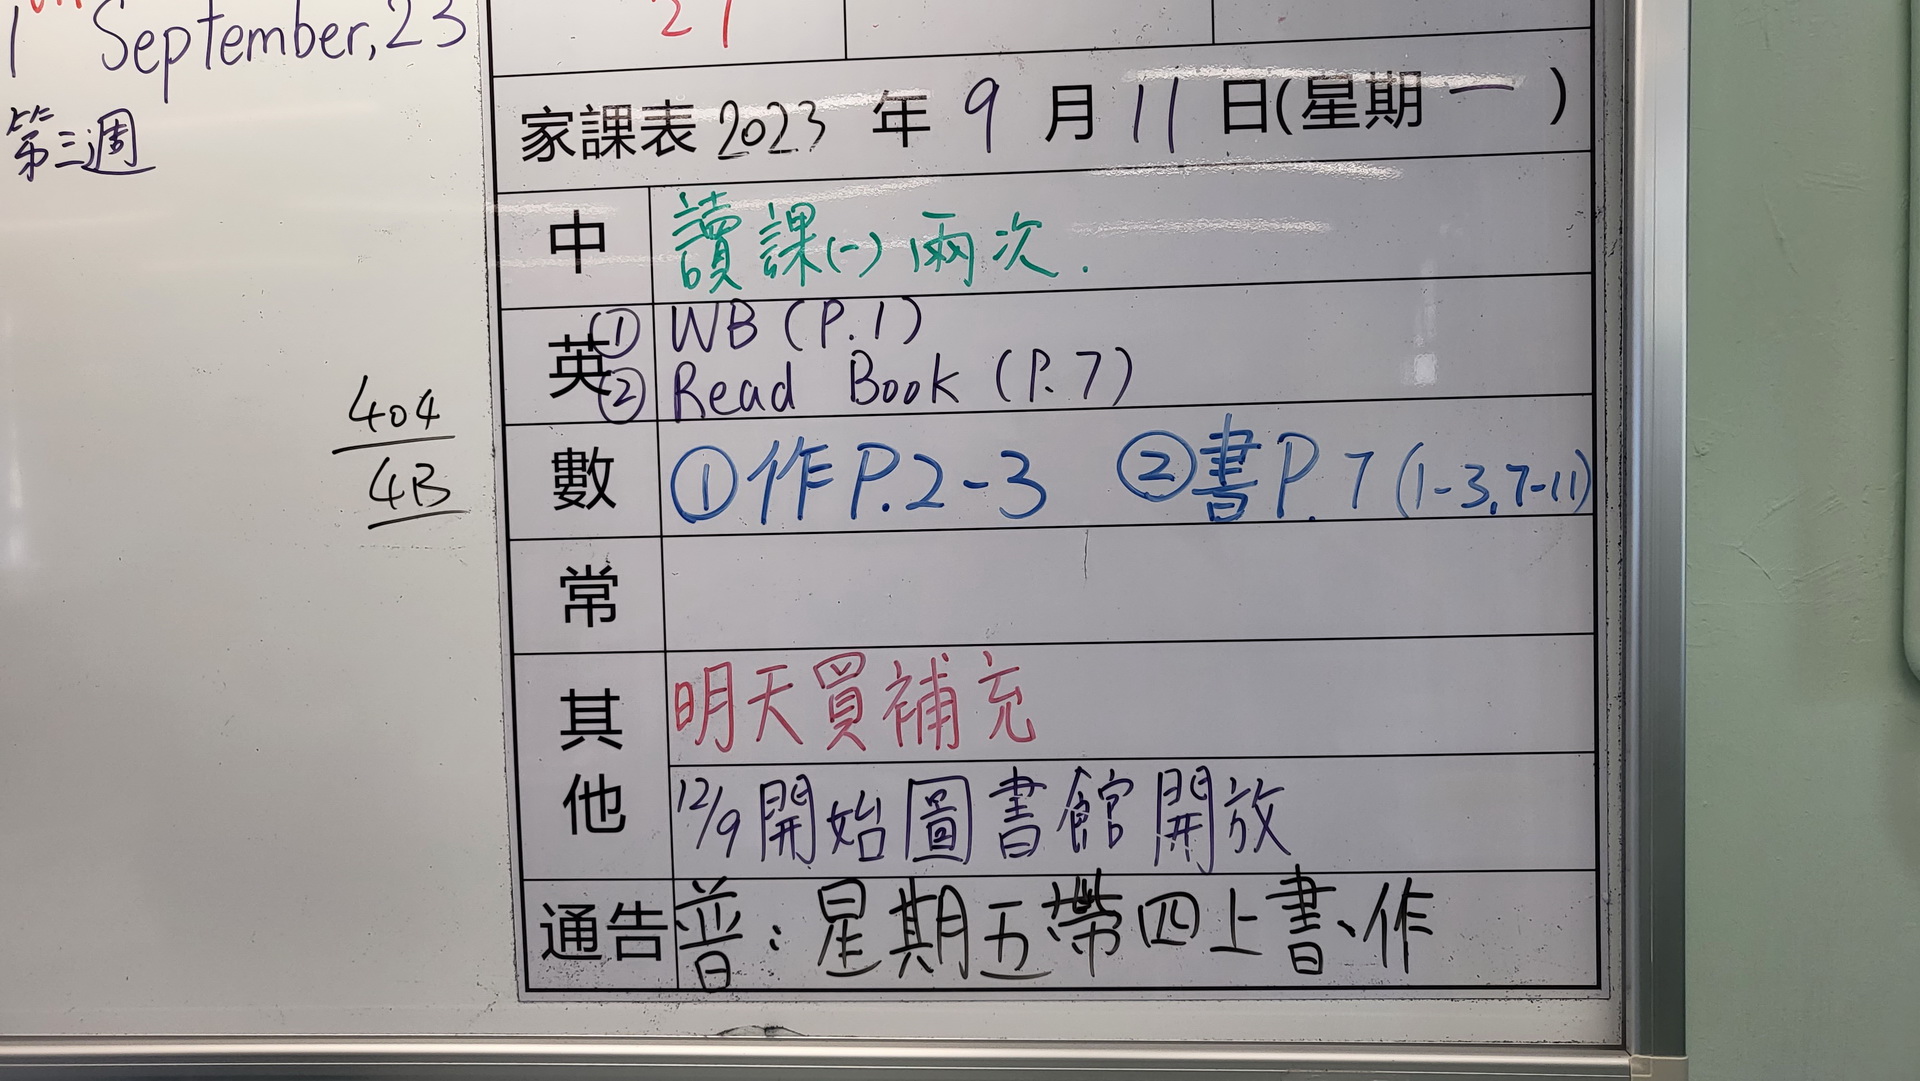 1 September,23
第三週
404
4B
27
家課表 2023 年 9 月 11 日(星期一)
中 讀課(一)兩次.
英 ① WB (P.1)
② Read Book (P.7)
數 ①作P.2-3 ②書P.7(1-3,7-11)
常
其他 明天買補充
12/9開始圖書館開放
通告 普:星期五帶四上書、作